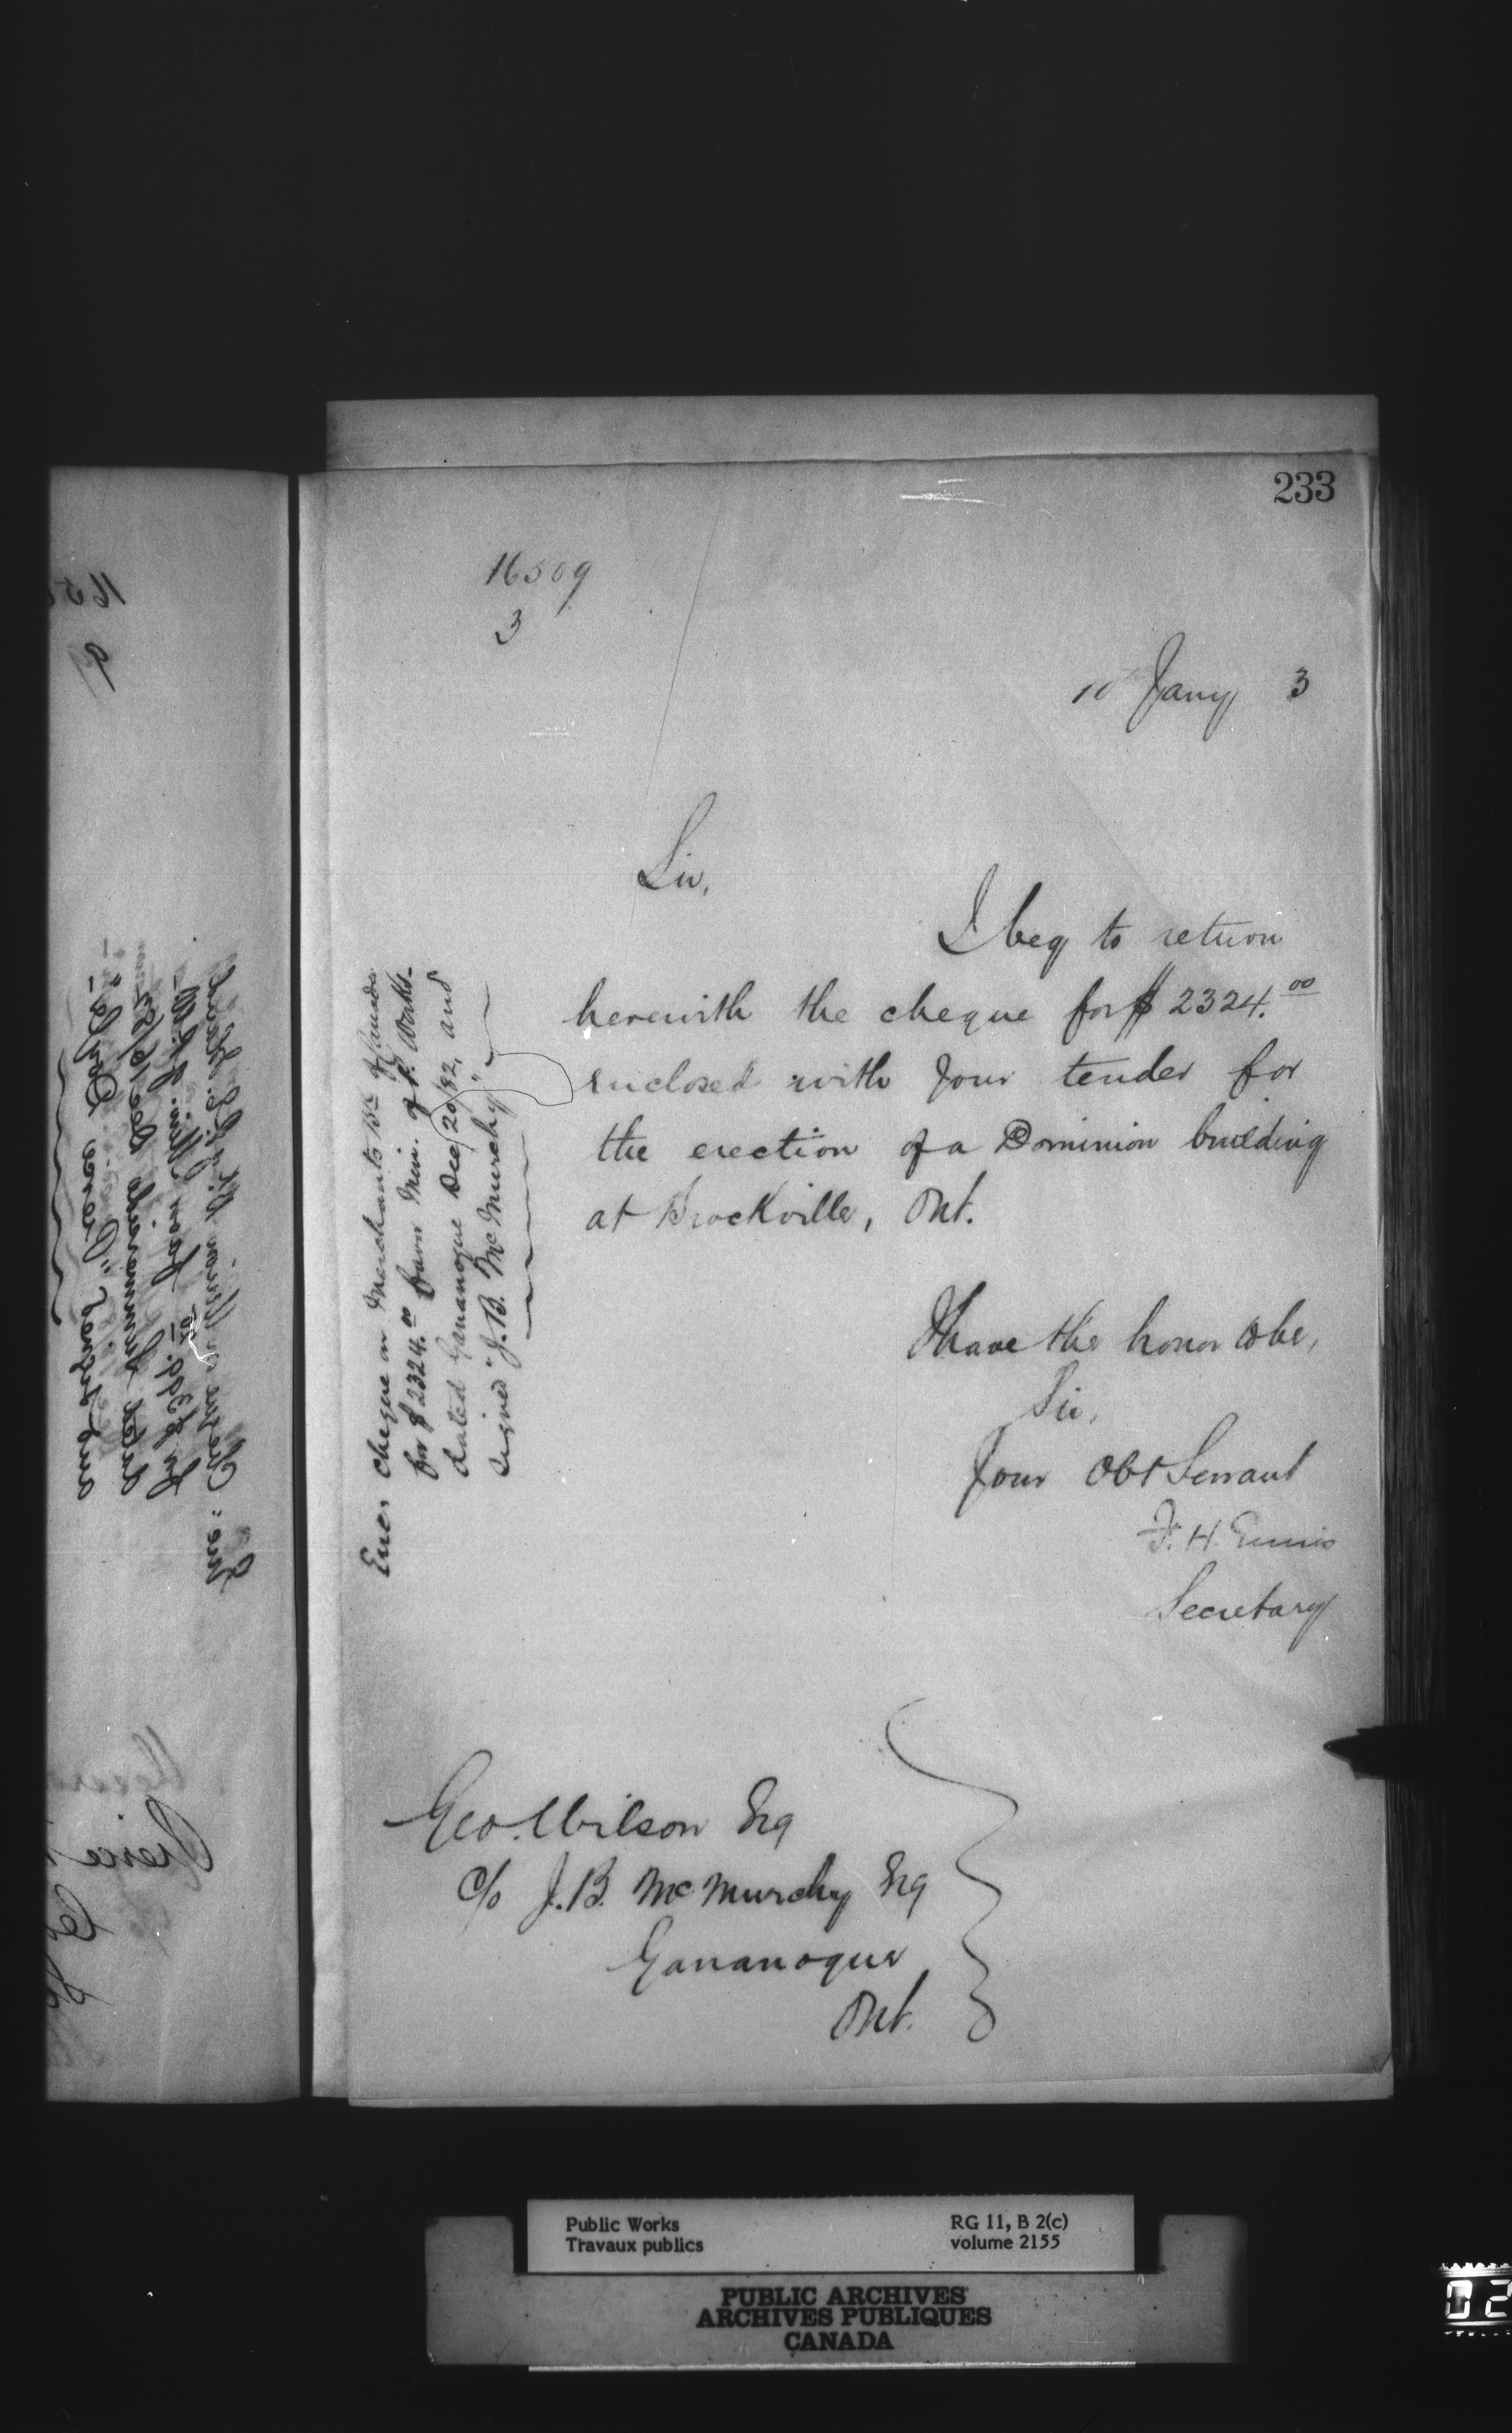 233
16509
3
10 Jany 3
Sir,
I beg to return
herewith the cheque for $ 2324.00
enclosed with your tender for
the erection of a Dominion building
at Brockville, Ont.
I have the honor to be,
Sir,
Your Obt Servant
F. H. Ennis
Secretary
Enc. cheque on Merchants Bk of Canada
for $ 2324.00 favor Min. of P. Works.
dated Gananoque Dec 20/82, and
signed "J. B. McMurchy"
Geo. Wilson Esq
c/o J. B. McMurchy Esq
Gananoque
Ont.
Public Works
Travaux publics
RG 11, B 2(c)
volume 2155
PUBLIC ARCHIVES
ARCHIVES PUBLIQUES
CANADA
02